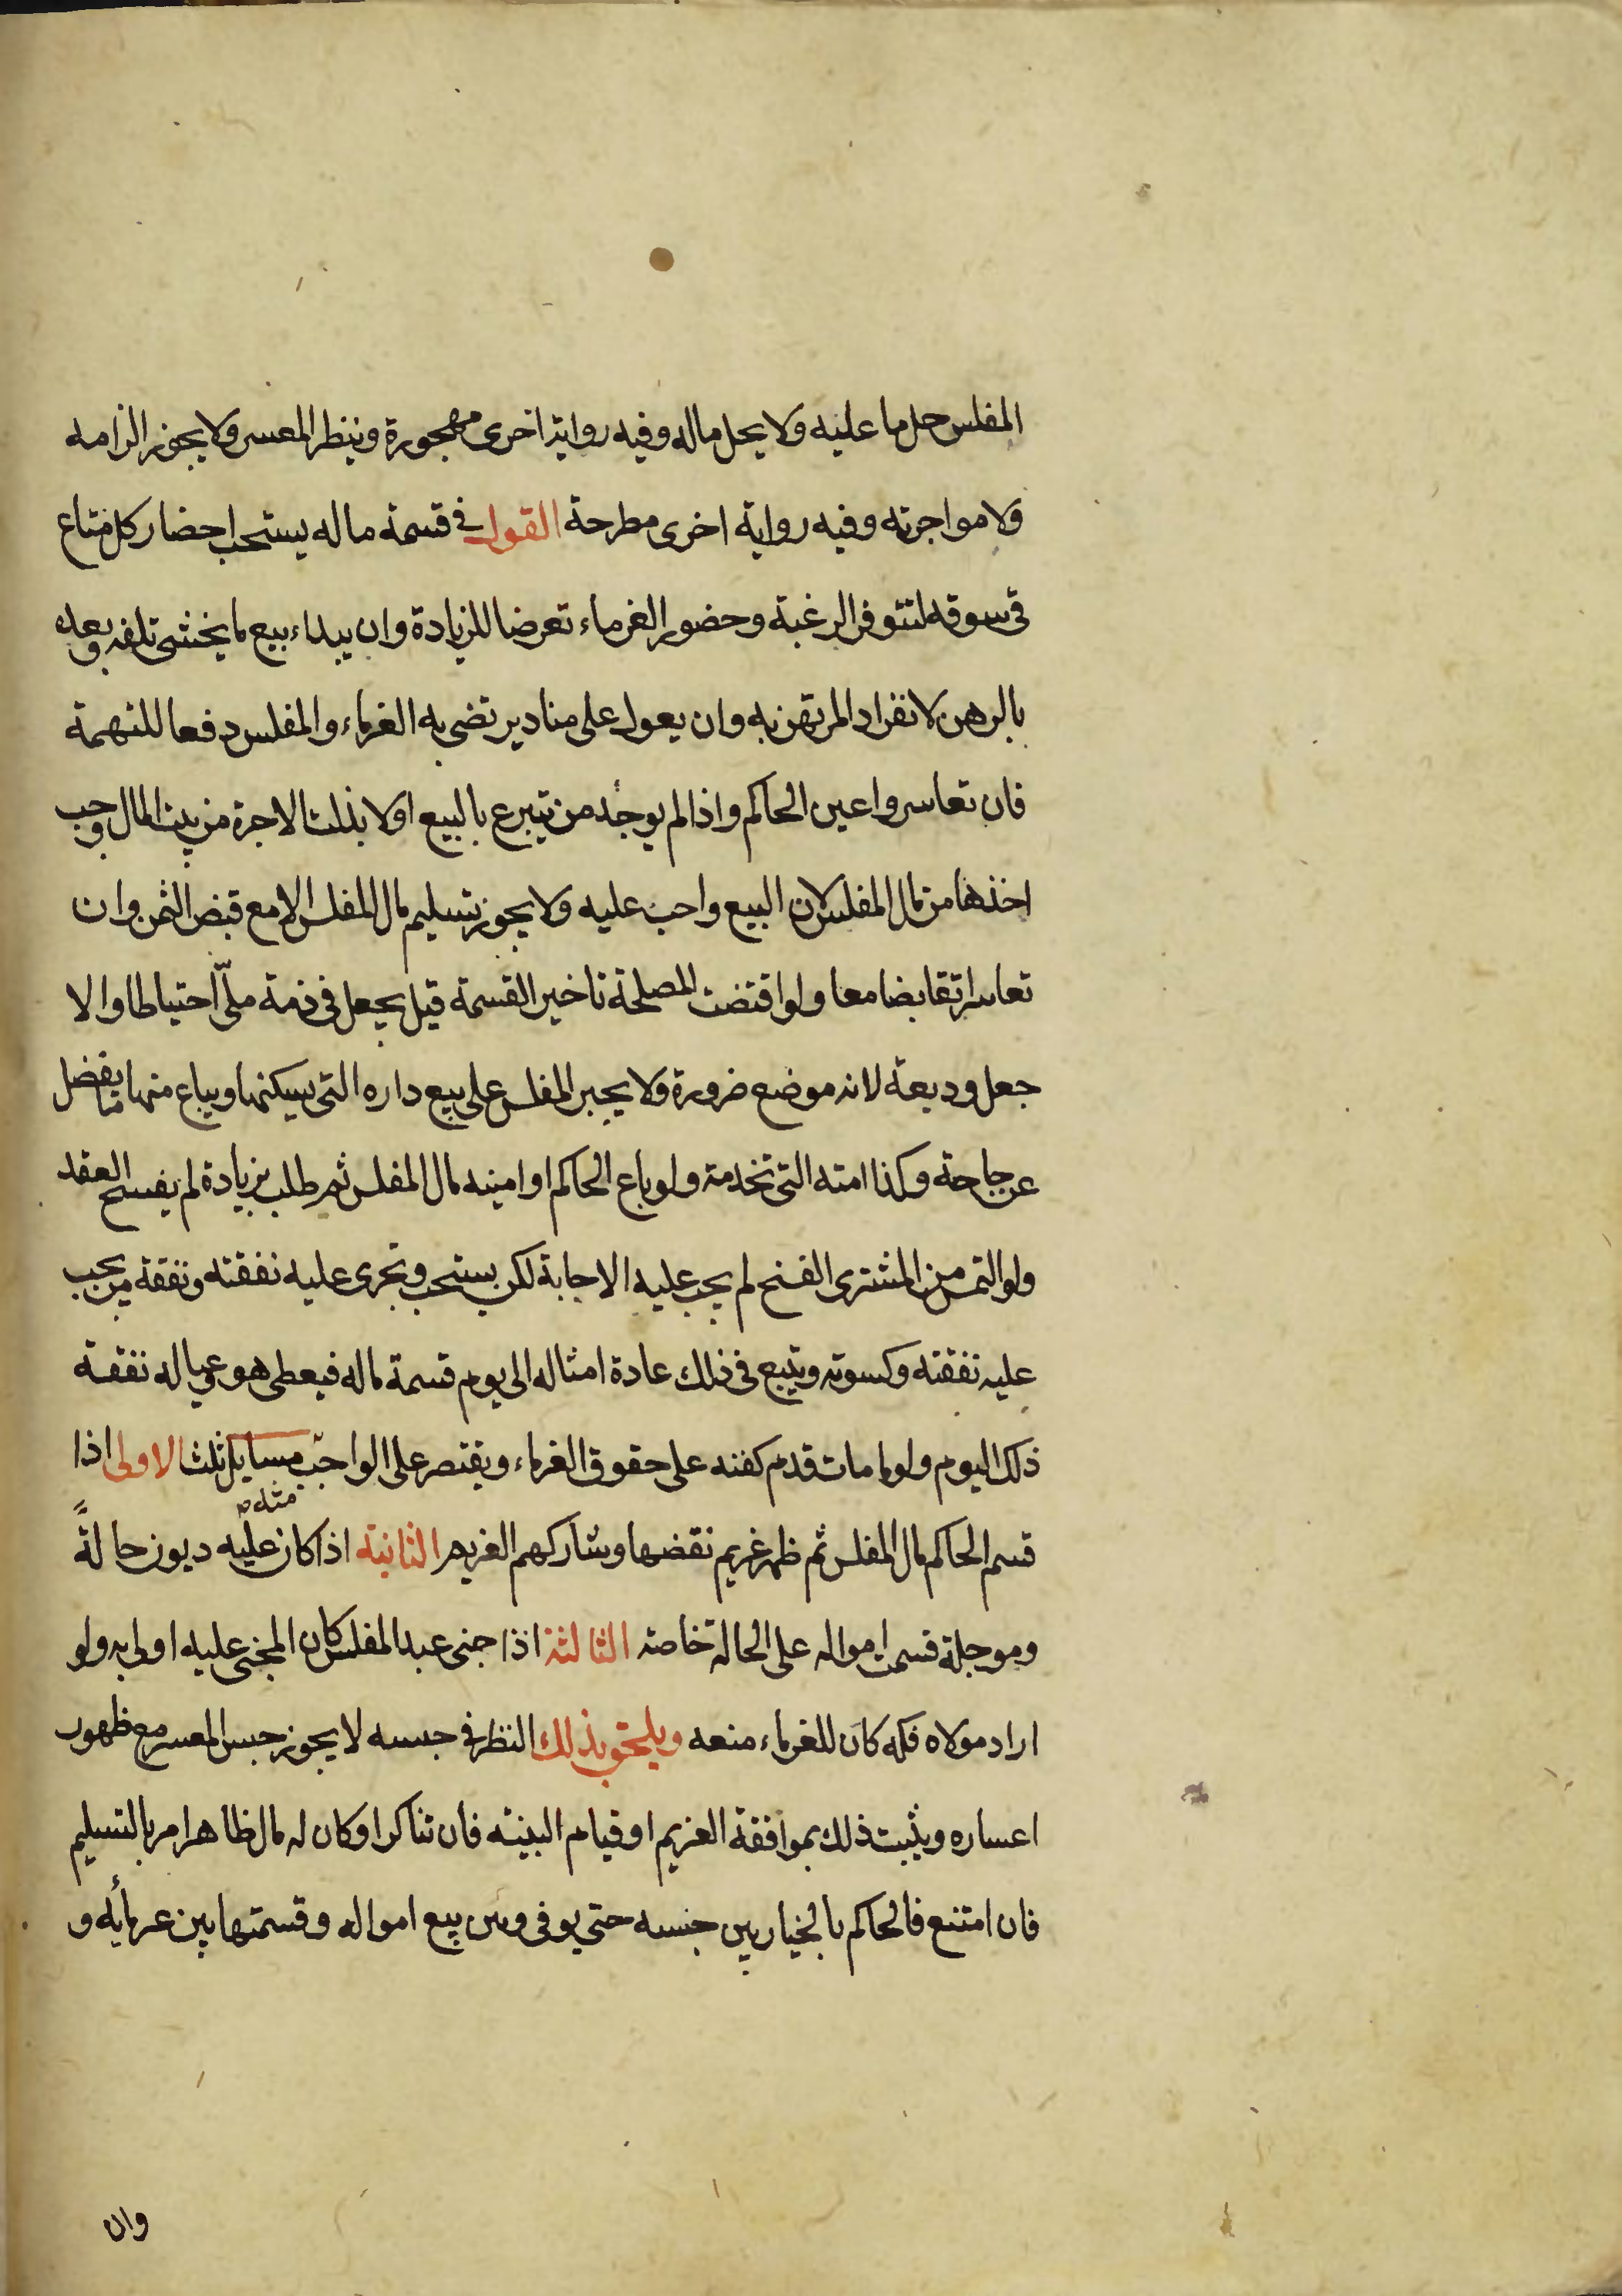 المفلس حل ما عليه ولا يحل ماله وفيه رواية اخرى مهجورة وينظر المعسر ولا يجوز الزامه
ولا مواجرته وفيه رواية اخرى مطرحة القول في قسمة ماله يستحب احضار كل متاع
في سوقه لتتوفر الرغبة وحضور الغرماء تعرضا للزيادة وان يبداء ببيع ما يخشى تلفه وبعده
بالرهن لانفراد المرتهن به وان يعول على مناد يرتضى به الغرماء والمفلس دفعا للتهمة
فان تعاسروا عين الحاكم واذا لم يوجد من يتبرع بالبيع اولا بذلت الاجرة من بيت المال وجب
اخذها من مال المفلس لان البيع واجب عليه ولا يجوز تسليم مال المفلس الا مع قبض الثمن وان
تعاسرا تقابضا معا ولو اقتضت المصلحة تاخير القسمة قيل يجعل في ذمة ملىّ احتياطا والا
جعل وديعة لانه موضع ضرورة ولا يجبر المفلس على بيع داره التى يسكنها ويباع منها ما يفضل
عن حاجته وكذا امته التى تخدمه ولو باع الحاكم او امينه مال المفلس ثم طلب بزيادة لم يفسخ العقد
ولو التمس من المشترى الفسخ لم يجب عليه الاجابة لكن يستحب وتجرى عليه نفقته ونفقة من يجب
عليه نفقته وكسوته ويتبع فى ذلك عادة امثاله الى يوم قسمة ماله فيعطى هو وعياله نفقة
ذلك اليوم ولو مات قدم كفنه على حقوق الغرماء ويقتصر على الواجب مسايل ثلث الاولى اذا
قسم الحاكم مال المفلس ثم ظهر غريم نقضها وشاركهم الغريم الثانية اذا كان عليه ديون حالةً
وموجلة قسمت امواله على الحالة خاصة الثالثة اذا جنى عبد المفلس كان المجنى عليه اولى به ولو
اراد مولاه فكه كان للغرماء منعه ويلحق بذلك النظر فى حبسه لا يجوز حبس المعسر مع ظهور
اعساره ويثبت ذلك بموافقة الغريم او قيام البينه فان تناكرا وكان له مال ظاهر امر بالتسليم
فان امتنع فالحاكم بالخيار بين حبسه حتى يوفى وبين بيع امواله وقسمتها بين غرمائه و
وان